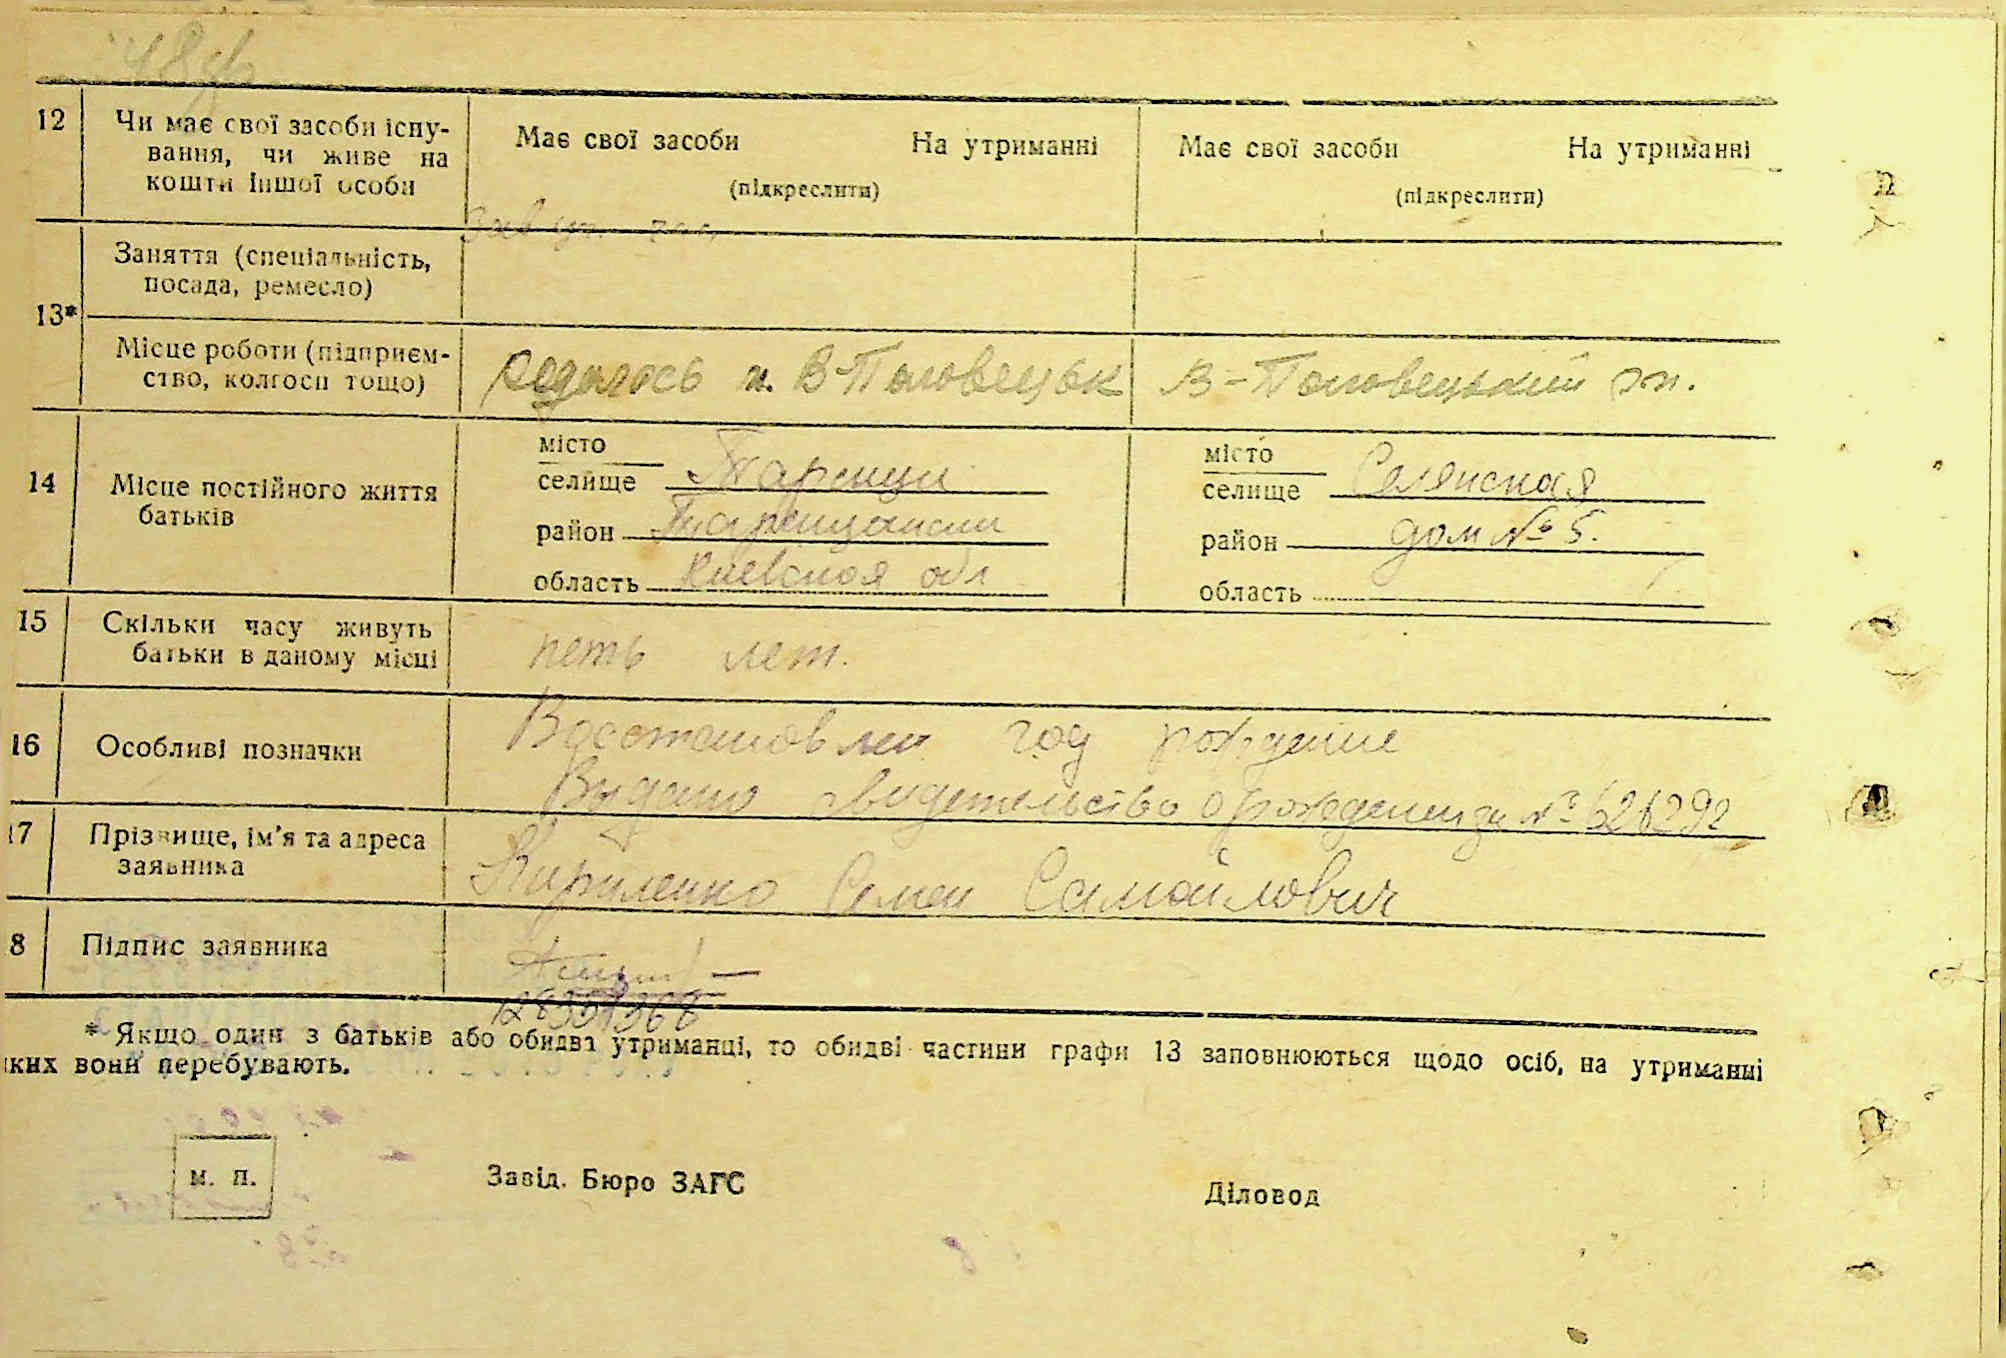 12
Чи має свої засоби існу-
вання, чи живе на
кошти іншої особи
Має свої засоби На утриманні
(підкреслити)
Має свої засоби На утриманні
(підкреслити)
13*
Заняття (спеціальність,
посада, ремесло)
Місце роботи (підприєм-
ство, колгосп тощо)
В-Половецьк
В-Половецький
14
Місце постійного життя
батьків
місто
селище Таращи
район
область Киевская обл
місто
селище Селянская
район дом № 5.
область
15
Скільки часу живуть
батьки в даному місці
петь лет.
16
Особливі позначки
Восстановлен год рождение
Выдано свидетельство о рождении за №
17
Прізвище, ім'я та адреса
заявника
Кириленко Семен Самойлович
8
Підпис заявника
* Якщо один з батьків або обидва утриманці, то обидві частини графи 13 заповнюються щодо осіб, на утриманні
яких вони перебувають.
м. п.
Завід. Бюро ЗАГС
Діловод